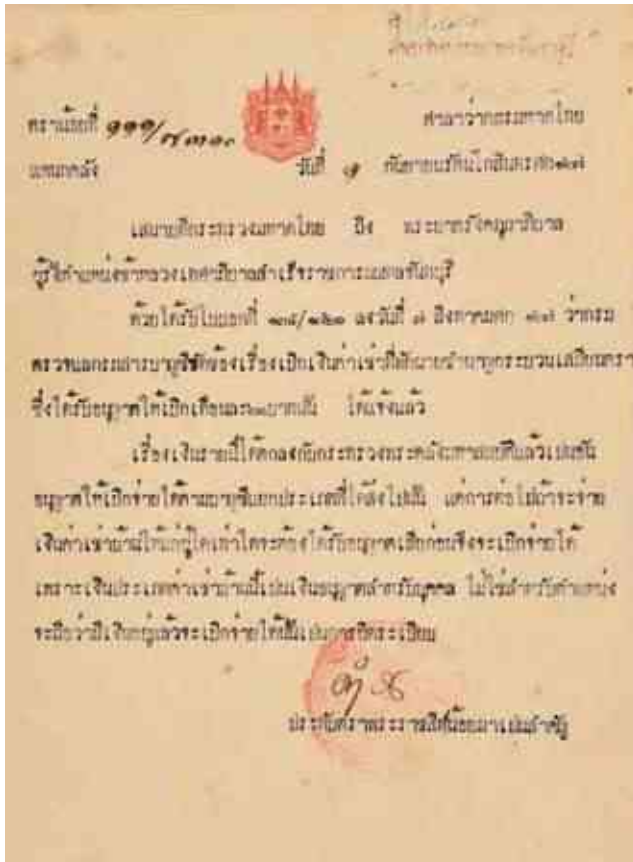 ตราน้อยที่ ๑๑๑/๗๓๑๐ ศาลาว่าการมหาดไทย
แผนกคลัง วันที่ ๑ กันยายนรัตนโกสินทรศก๑๒๗
เสนาบดีกระทรวงมหาดไทย ถึง พระยาตรังคภูมาภิบาล
ผู้รั้งตำแหน่งข้าหลวงเทศาภิบาลสำเร็จราชการมณฑลจันทบุรี
ด้วยได้รับใบบอกที่ ลงวันที่ ๗ สิงหาคมศก ๑๒๗ ว่ากรม
ตรวจแลกรมสารบาญชีขัดข้องเรื่องเบิกเงินค่าเช่าที่พักนายชำนาญกระบวนเสมียนตรา
ซึ่งได้รับอนุญาตให้เบิกเดือนละ บาทนั้น ได้แจ้งแล้ว
เรื่องเงินรายนี้ได้ตกลงกับกระทรวงพระคลังมหาสมบัติแล้วเปนอัน
อนุญาตให้เบิกจ่ายได้ตามบาญชีแยกประเภทที่ได้ส่งไปนั้น แต่การต่อไปถ้าจะจ่าย
เงินค่าเช่าบ้านให้แก่ผู้ใดเท่าใดจะต้องได้รับอนุญาตเสียก่อนจึงจะเบิกจ่ายได้
เพราะเงินประเภทค่าเช่าบ้านนี้เปนเงินอนุญาตสำหรับบุคคล ไม่ใช่สำหรับตำแหน่ง
จะถือว่ามีเงินอยู่แล้วจะเบิกจ่ายได้นั้นเปนการผิดระเบียบ
ประทับตราพระราชสีห์น้อยมาเปนสำคัญ